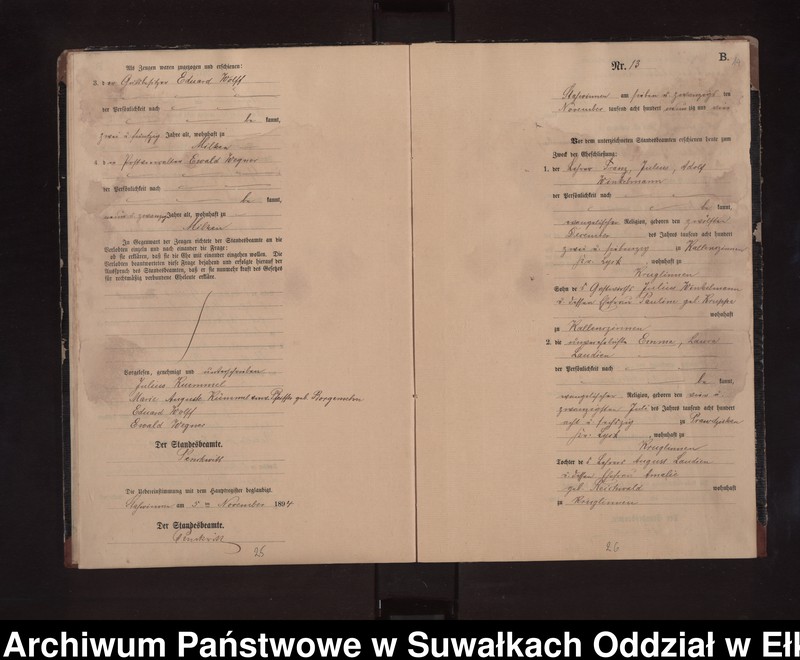 Als Zeugen waren zugezogen und erschienen:
3. der Gutsbesitzer Eduard Wolff
der Persönlichkeit nach
be kannt,
zwei u fünfzig Jahre alt, wohnhaft zu
Milken
4. der Ewald Wegner
der Persönlichkeit nach
be kannt,
Jahre alt, wohnhaft zu
Milken
In Gegenwart der Zeugen richtete der Standesbeamte an die
Verlobten einzeln und nach einander die Frage:
ob sie erklären, daß sie die Ehe mit einander eingehen wollen. Die
Verlobten beantworteten diese Frage bejahend und erfolgte hierauf der
Ausspruch des Standesbeamten, daß er sie nunmehr kraft des Gesetzes
für rechtmäßig verbundene Eheleute erkläre.
Vorgelesen, genehmigt und unterschrieben
Julius
Marie Auguste geb
Eduard Wolff
Ewald Wegner
Der Standesbeamte.
Die Uebereinstimmung mit dem Hauptregister beglaubigt.
am 5 ten November 1894
Der Standesbeamte.
25
B.
Nr. 13
am sieben u zwanzigst ten
November tausend acht hundert neun zig und vier
Vor dem unterzeichneten Standesbeamten erschienen heute zum
Zweck der Eheschließung:
1. der Lehrer Franz, Julius, Adolf
Winkelmann
der Persönlichkeit nach
be kannt,
evangelischer Religion, geboren den zwölften
des Jahres tausend acht hundert
zwei u siebenzig zu Kallenczinnen
Kr. Lyck, wohnhaft zu
Kruglinnen
Sohn des Julius Winkelmann
u dessen Ehefrau Pauline geb Kruppa
wohnhaft
zu Kallenczinnen
2. die unverehelichte Emma, Laura
Landien
der Persönlichkeit nach
be kannt,
evangelischer Religion, geboren den vier u
zwanzigsten Juli des Jahres tausend acht hundert
acht u sechszig zu
Kr. Lyck, wohnhaft zu
Kruglinnen
Tochter des Lehrers August Landien
u dessen Ehefrau Amalie
geb Reichwald wohnhaft
zu Kruglinnen
26
Archiwum Państwowe w Suwałkach Oddział w Ełk